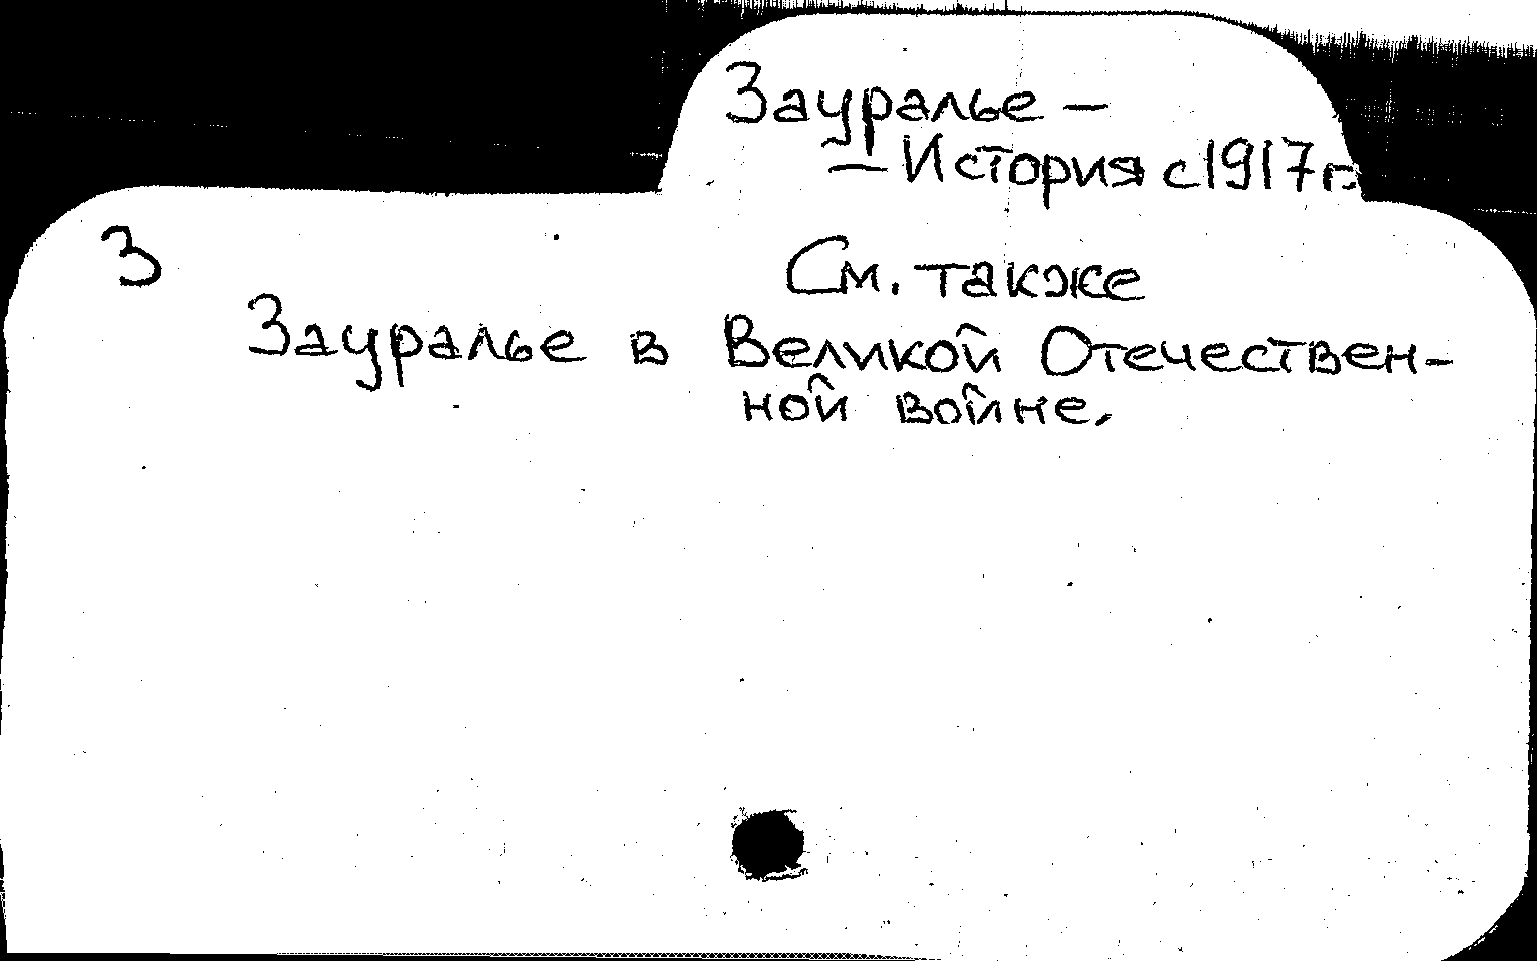 Зауралье –
– История с 1917 г.
З
См. также
Зауралье в Великой Отечествен-
ной войне.